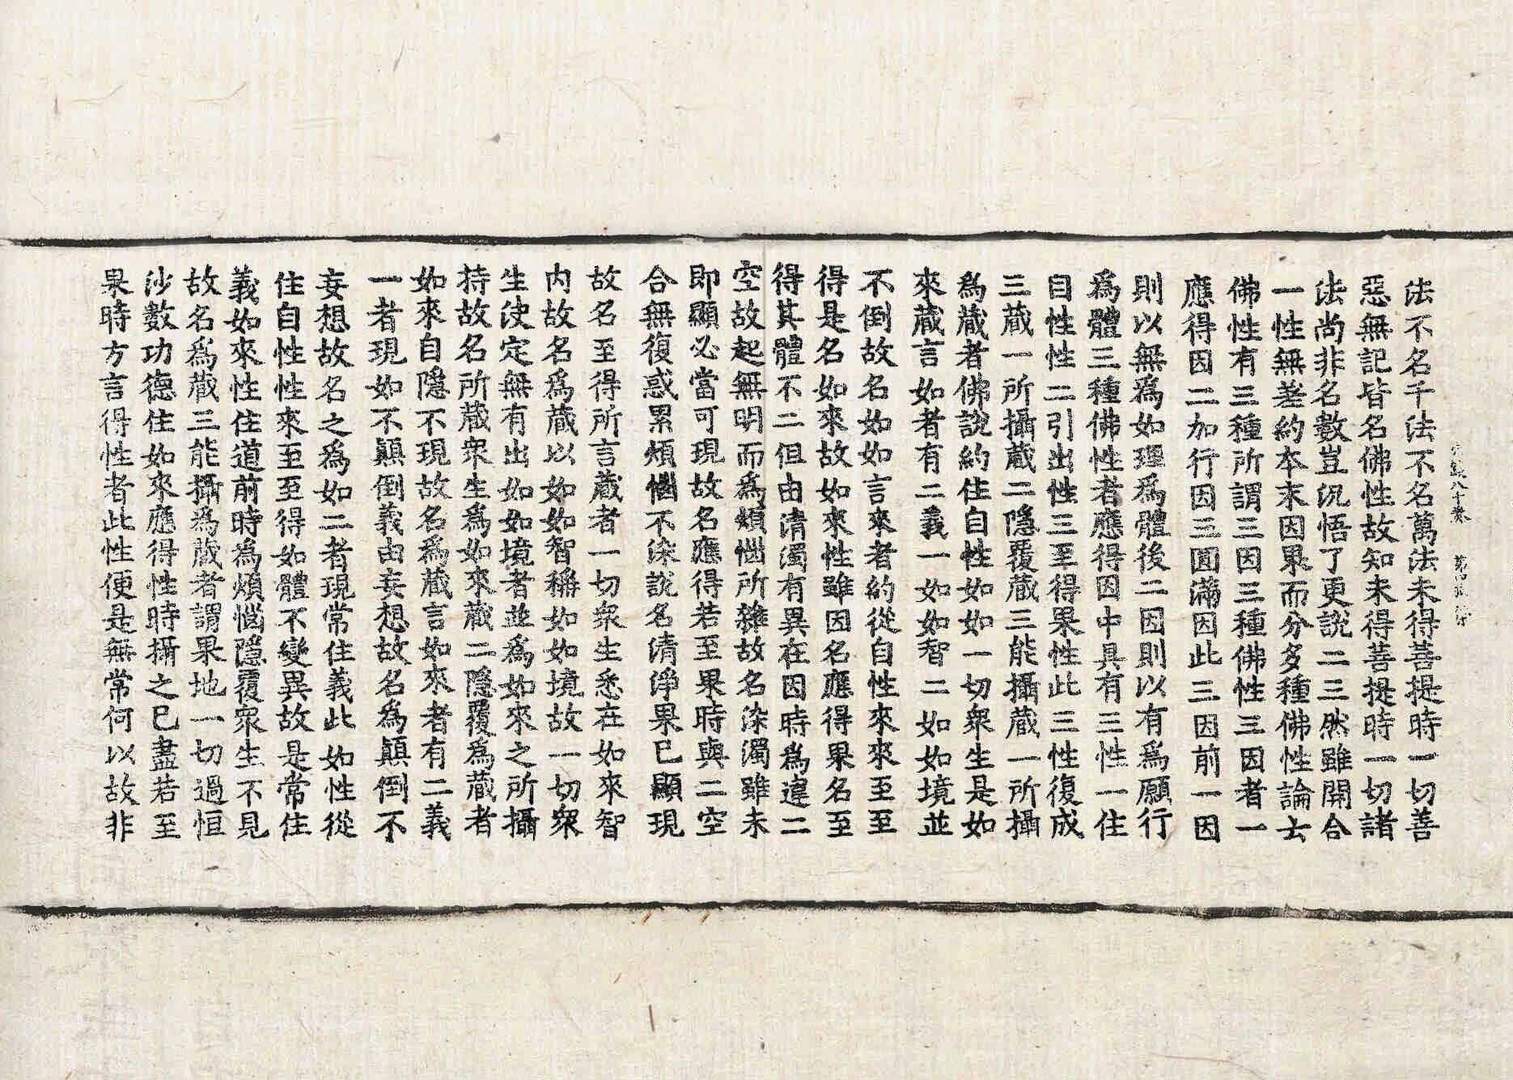 法不名千法不名萬法未得菩提時一切善
惡無記皆名佛性故知未得菩提時一切諸
法尚非名數豈況悟了更說二三然雖開合
一性無差約本末因果而分多種佛性論云
佛性有三種所謂三因三種佛性三因者一
應得因二加行因三圓滿因此三因前一因
則以無爲如理爲體後二因則以有爲願行
爲體三種佛性者應得因中具有三性一住
自性性二引出性三至得果性此三性復成
三藏一所攝藏二隱覆藏三能攝藏一所攝
爲藏者佛說約住自性如如一切衆生是如
來藏言如者有二義一如如智二如如境並
不倒故名如如言來者約從自性來來至至
得是名如來故如來性雖因名應得果名至
得其體不二但由清濁有異在因時爲違二
空故起無明而爲煩惱所雜故名染濁雖未
即顯必當可現故名應得若至果時與二空
合無復惑累煩惱不染說名清淨果已顯現
故名至得所言藏者一切衆生悉在如來智
内故名爲藏以如如智稱如如境故一切衆
生決定無有出如如境者並爲如來之所攝
持故名所藏衆生爲如來藏二隱覆爲藏者
如來自隱不現故名爲藏言如來者有二義
一者現如不顛倒義由妄想故名爲顛倒不
妄想故名之爲如二者現常住義此如性從
住自性性來至至得如體不變異故是常住
義如來性住道前時爲煩惱隱覆衆生不見
故名爲藏三能攝爲藏者謂果地一切過恒
沙數功德住如來應得性時攝之已盡若至
果時方言得性者此性便是無常何以故非